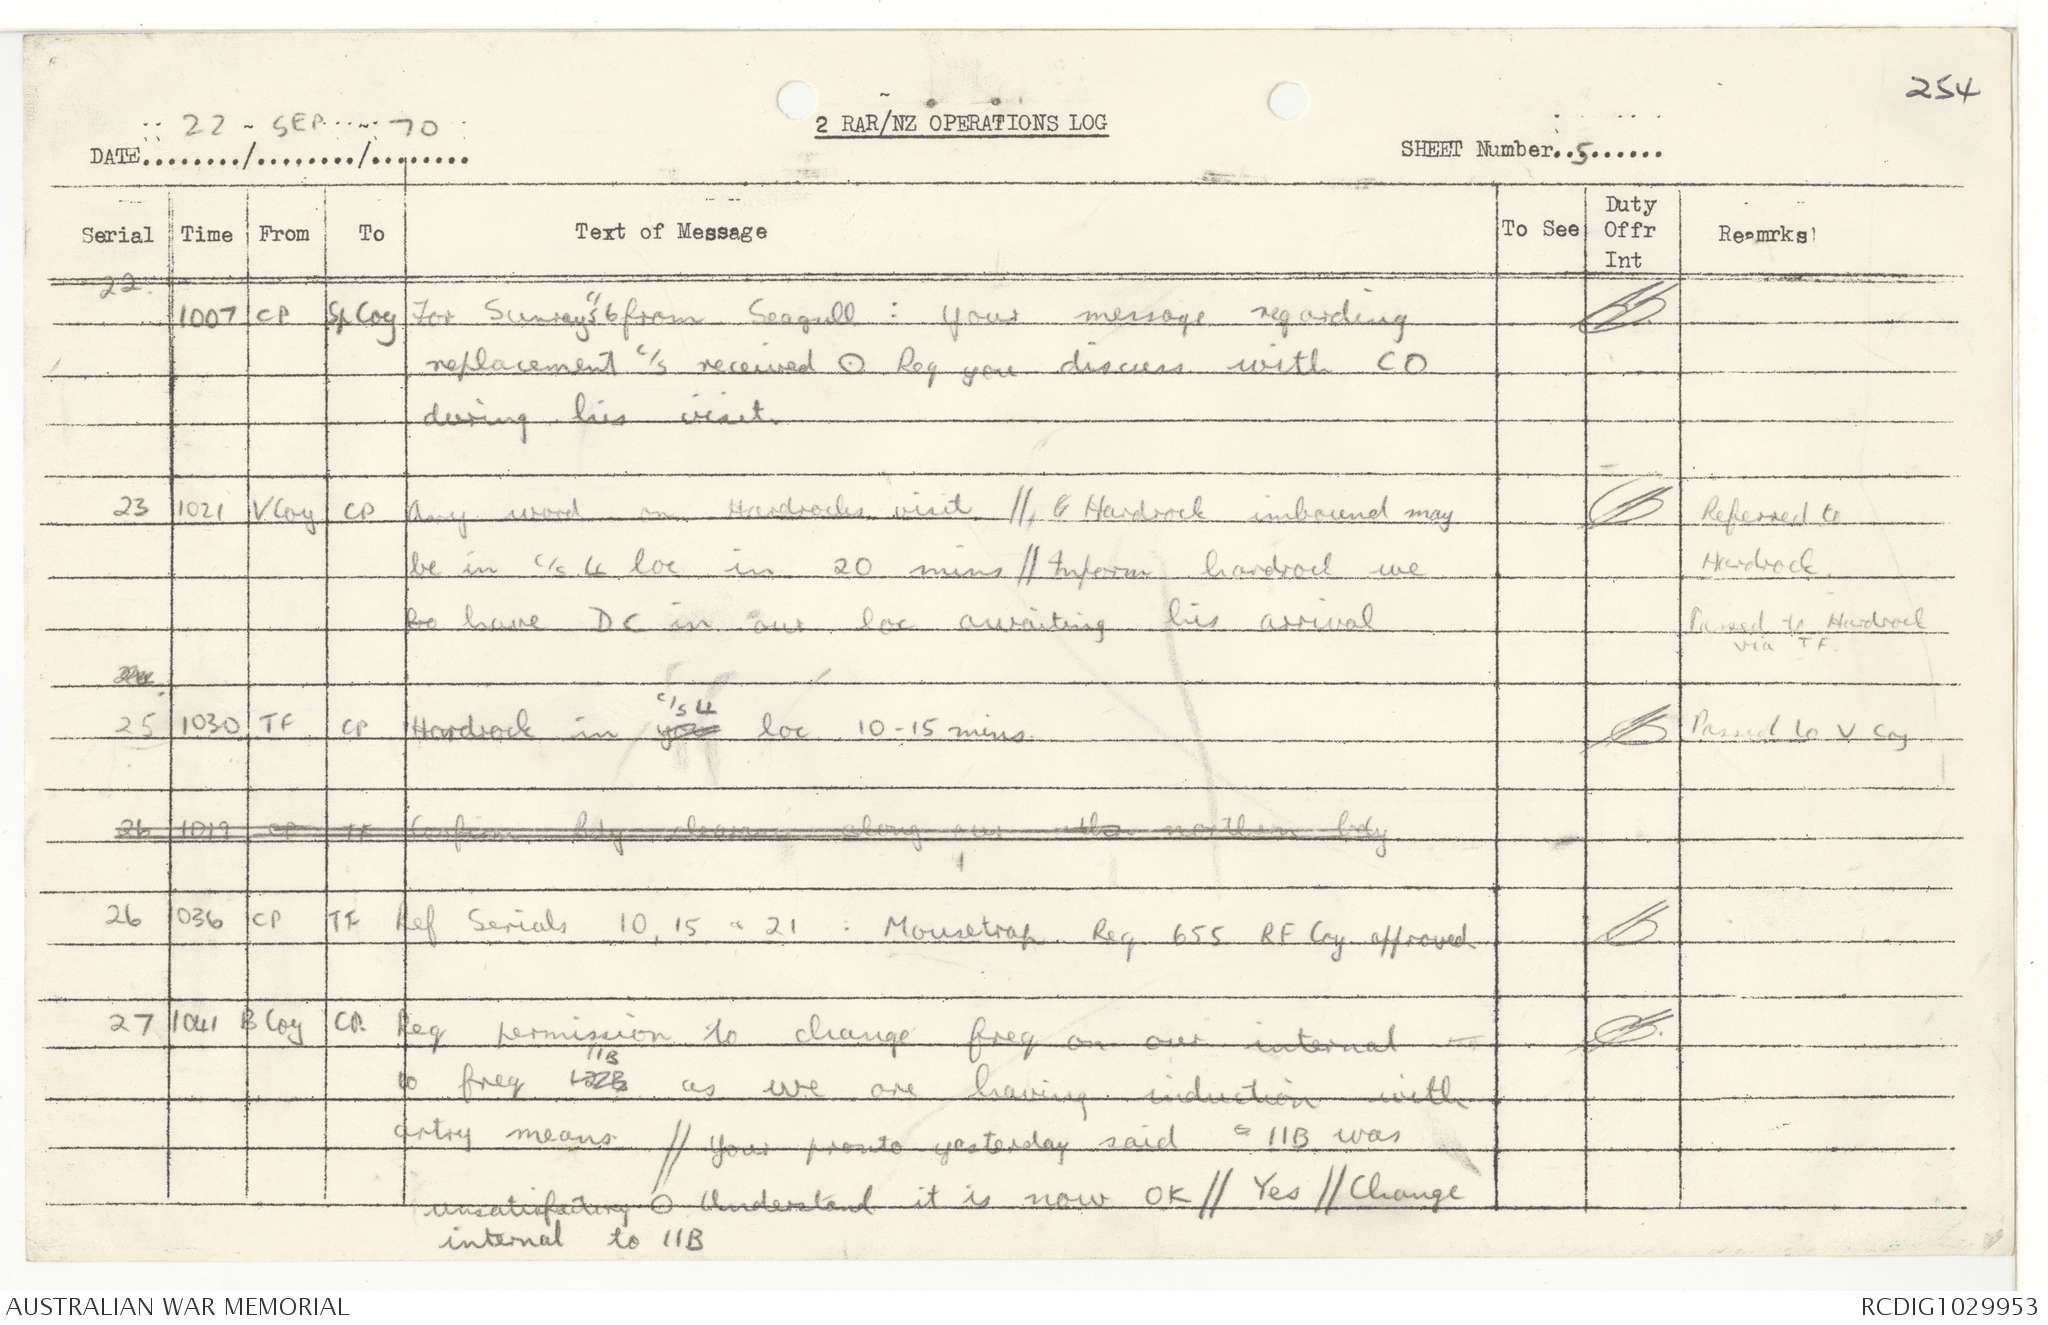 254
22 SEP 70
2 RAR/NZ OPERATIONS LOG
DATE......../......../........
SHEET Number..5......
Serial Time From To Text of Message To See Duty Offr Int Reamrks
22
1007 CP Sp Coy For Sunray 56 from Seagull : your message regarding
replacement c/s received ⊙ Req you discuss with CO
during his visit.
23 1021 V Coy CP Any word on Hardrocks visit // Hardrock inbound may Referred to
be in c/s 4 loc in 20 mins // Inform hardrock we Hardrock
have DC in our loc awaiting his arrival Passed to Hardrock
via TF.
c/s 4
25 1030 TF CP Hardrock in loc 10-15 mins Passed to V Coy
26 1019 CP TF Confirm bdy clearance along our northern bdy
26 1036 CP TF Ref Serials 10, 15 & 21 : Mousetrap Req 655 RF Coy approved
27 1041 B Coy CP. Req permission to change freq on our internal
11B
to freq as we are having induction with
artry means // Your pronto yesterday said 11B was
unsatisfactory ⊙ Understand it is now OK // Yes // Change
internal to 11B
AUSTRALIAN WAR MEMORIAL
RCDIG1029953